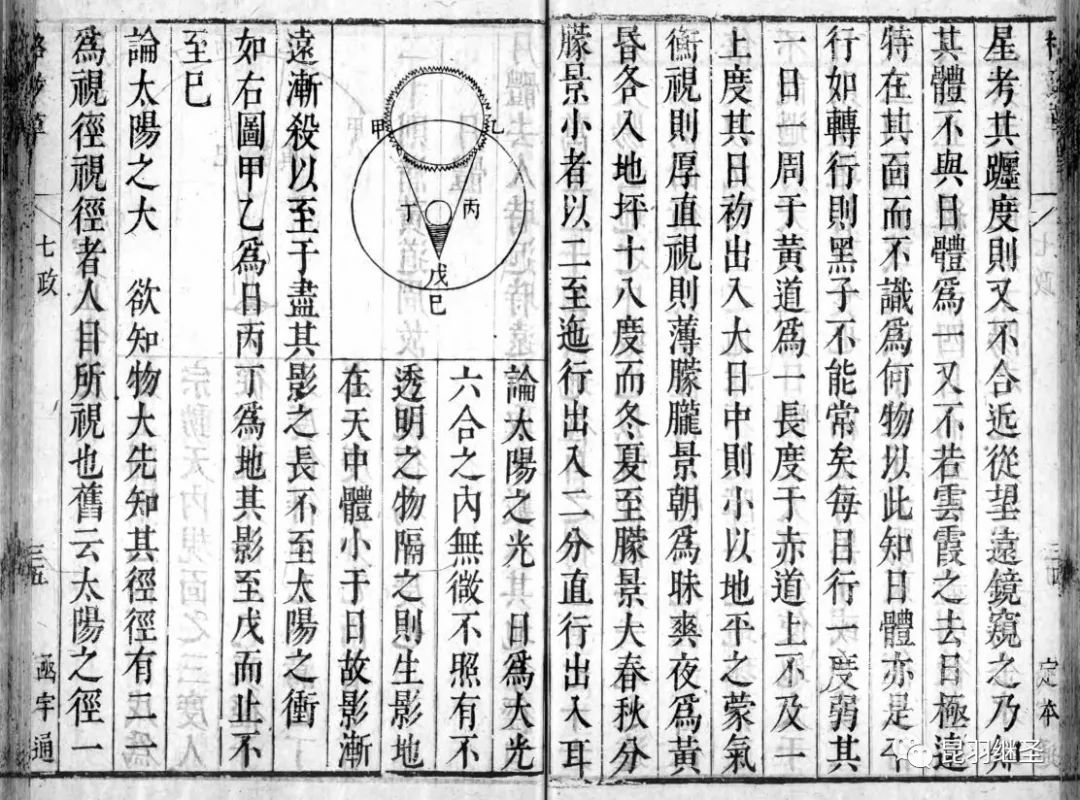 星考其躔度則又不合近從望遠鏡窺之乃知
其體不與日體爲一又不若雲霞之去日極遠
特在其面而不識爲何物以此知日體亦是平
行如轉行則黑子不能常矣每日行一度弱其
一日一周于黃道爲一長度于赤道上不及一
上度其日初出入大日中則小以地平之蒙氣
衡視則厚直視則薄朦朧景朝爲昧爽夜爲黃
昏各入地坪十八度而冬夏至朦景大春秋分
朦景小者以二至迤行出入二分直行出入耳
論太陽之光 日爲大光
六合之內無微不照有不
透明之物隔之則生影地
在天中體小于日故影漸
甲
乙
丙
丁
戊
巳
遠漸殺以至于盡其影之長不至太陽之衝
如右圖甲乙爲日丙丁爲地其影至戊而止不
至巳
論太陽之大 欲知物大先知其徑徑有二一
爲視徑視徑者人目所視也舊云太陽之徑一
格致草
七政
三五
函宇通
七政
定本
昆羽继圣